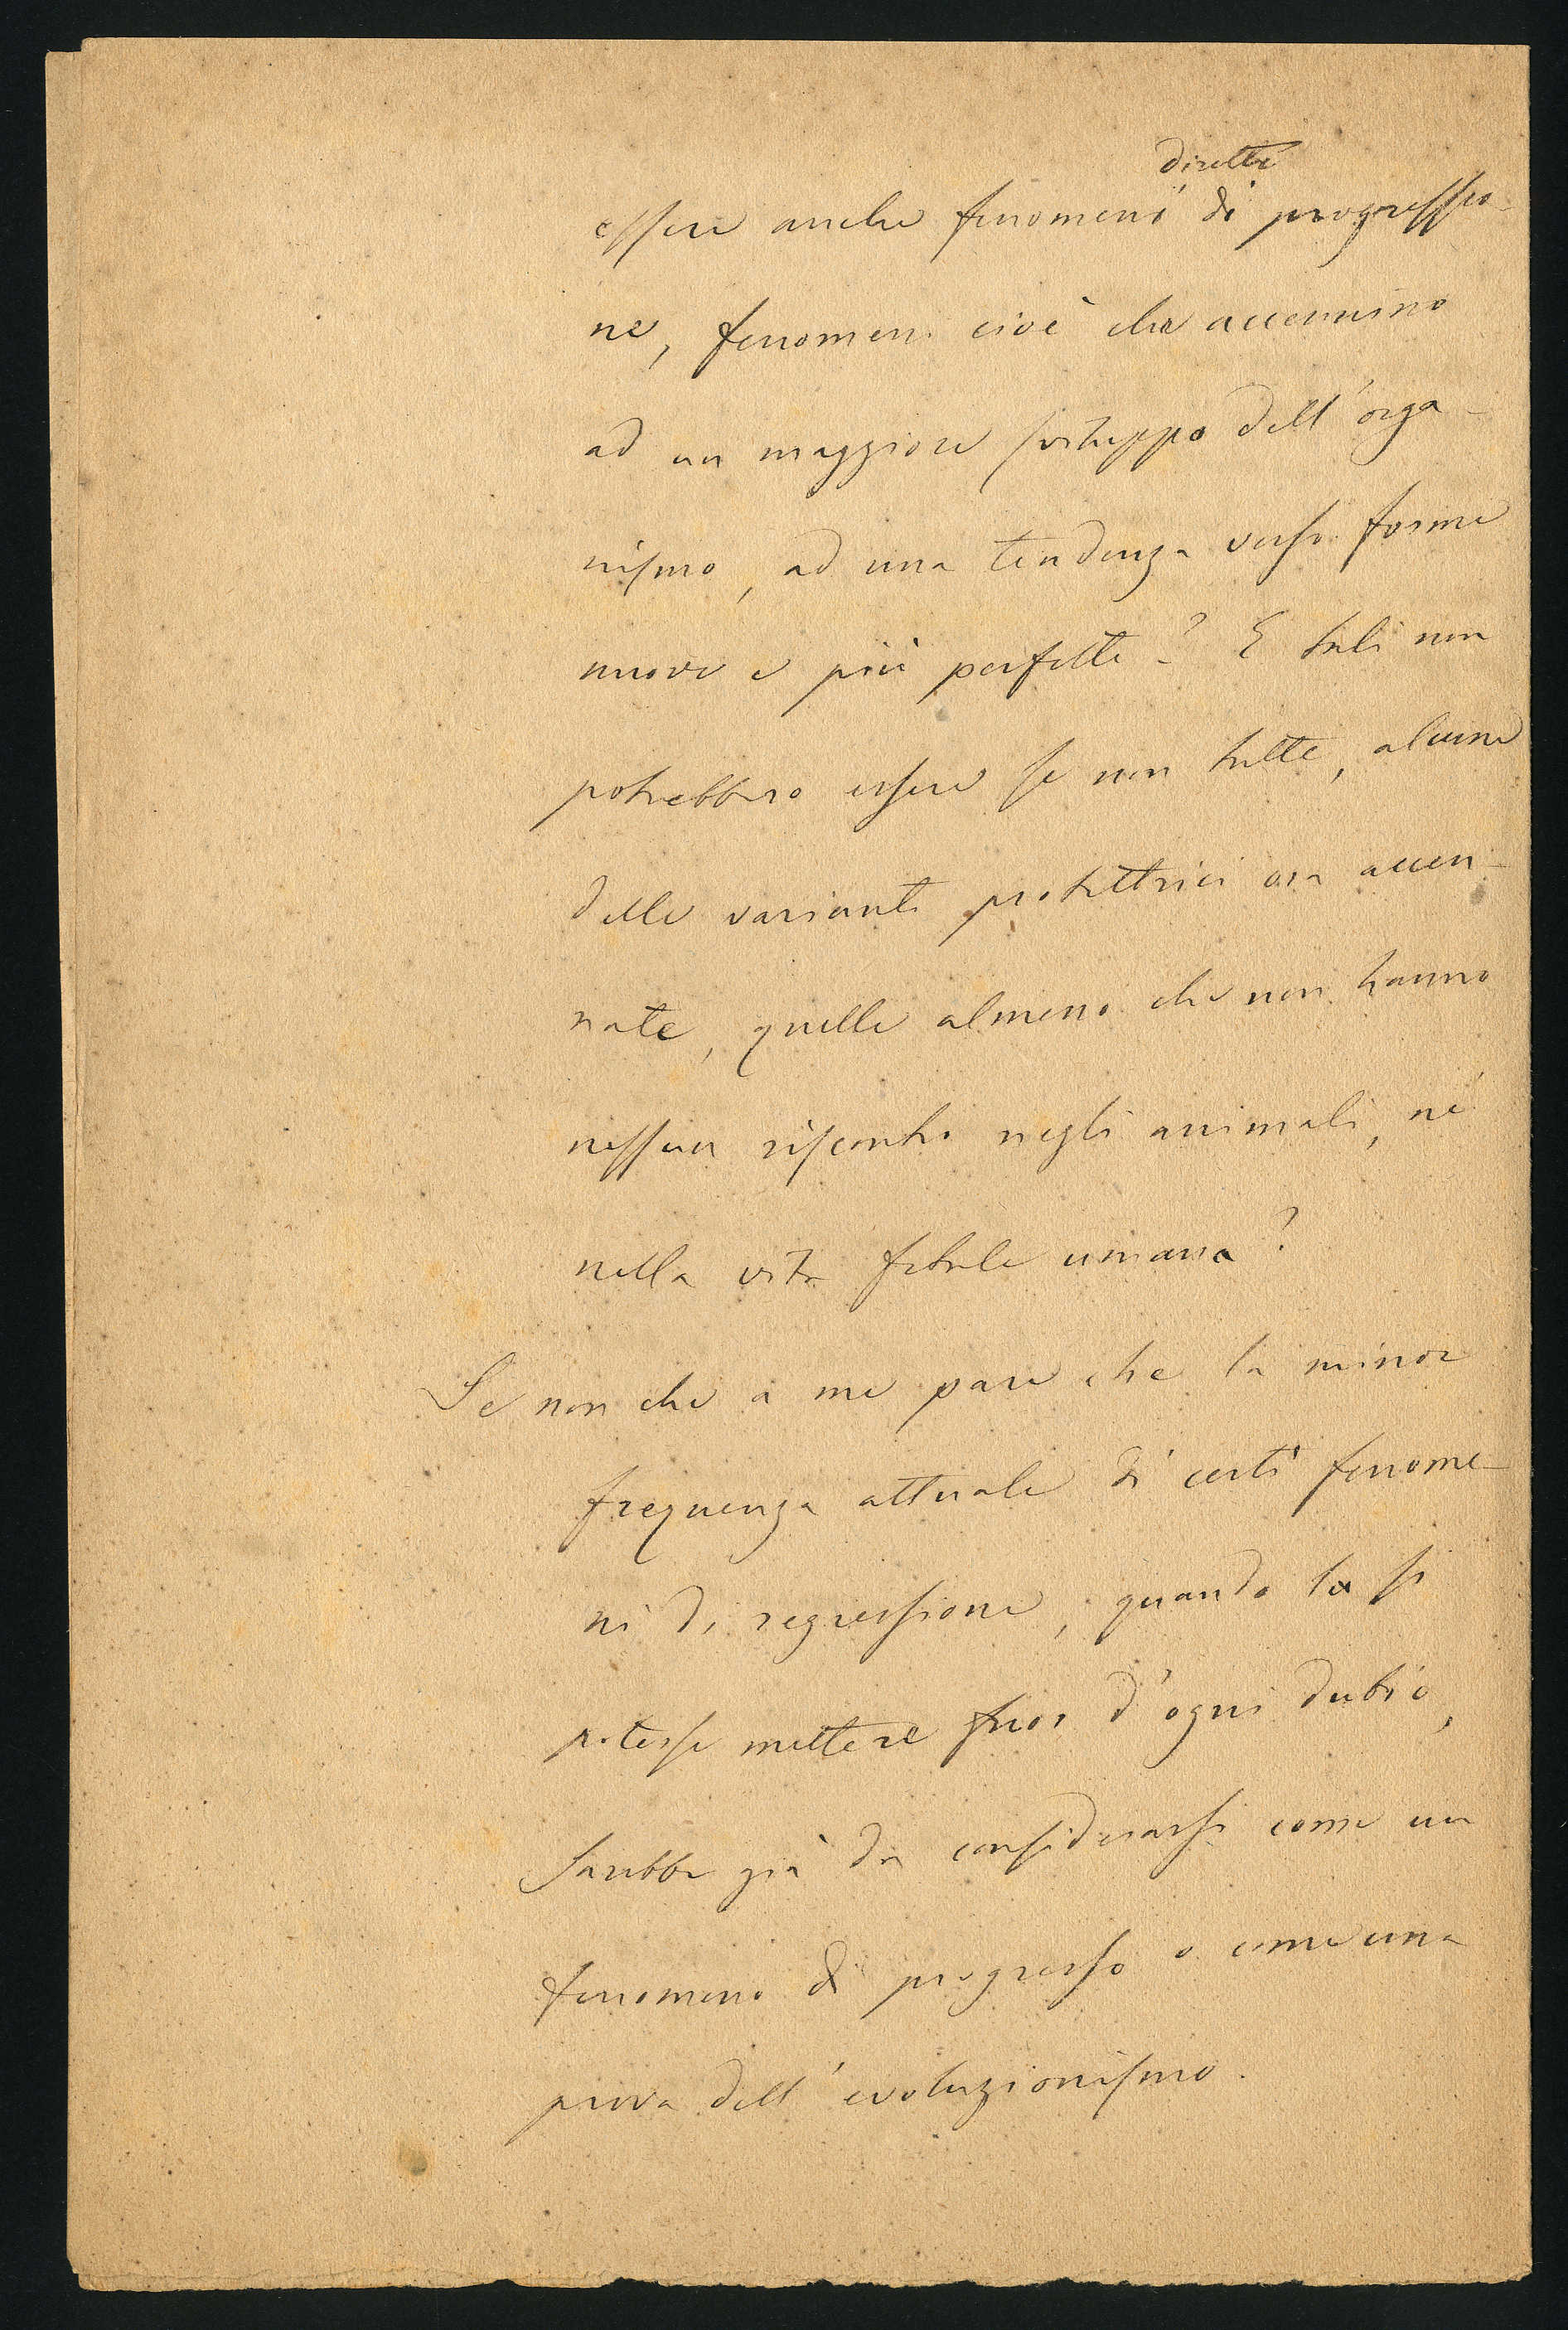 diretti
essere anche fenomeni di progressio-
ne, fenomeni cioè che accennino
ad un maggiore sviluppo dell'orga-
nismo, ad una tendenza verso forme
nuove e più perfette? E tali non
potrebbero essere se non tutte, alcune
delle varianti protettrici ora accen-
nate, quelle almeno che non hanno
nessun riscontro negli animali, nè
nella vita fetale umana?
Se non che a me pare che la minor
frequenza attuale di certi fenome-
ni di regressione, quando la si
potesse mettere fuor d'ogni dubio,
sarebbe già da considerarsi come un
fenomeno di progresso o come una
prova dell'evoluzionismo.